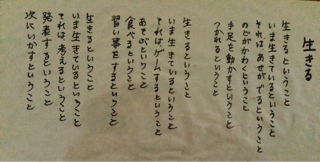 生きる
生きるということ
いま生きているということ
それは あせがでるということ
のどがかわくということ
手足を動かすということ
つかれるということ
生きるということ
いま生きているということ
それはゲームするということ
あそぶということ
食べるということ
習い事をするということ
生きるということ
いま生きているということ
それは、考えるということ
発表するということ
次にいかすということ